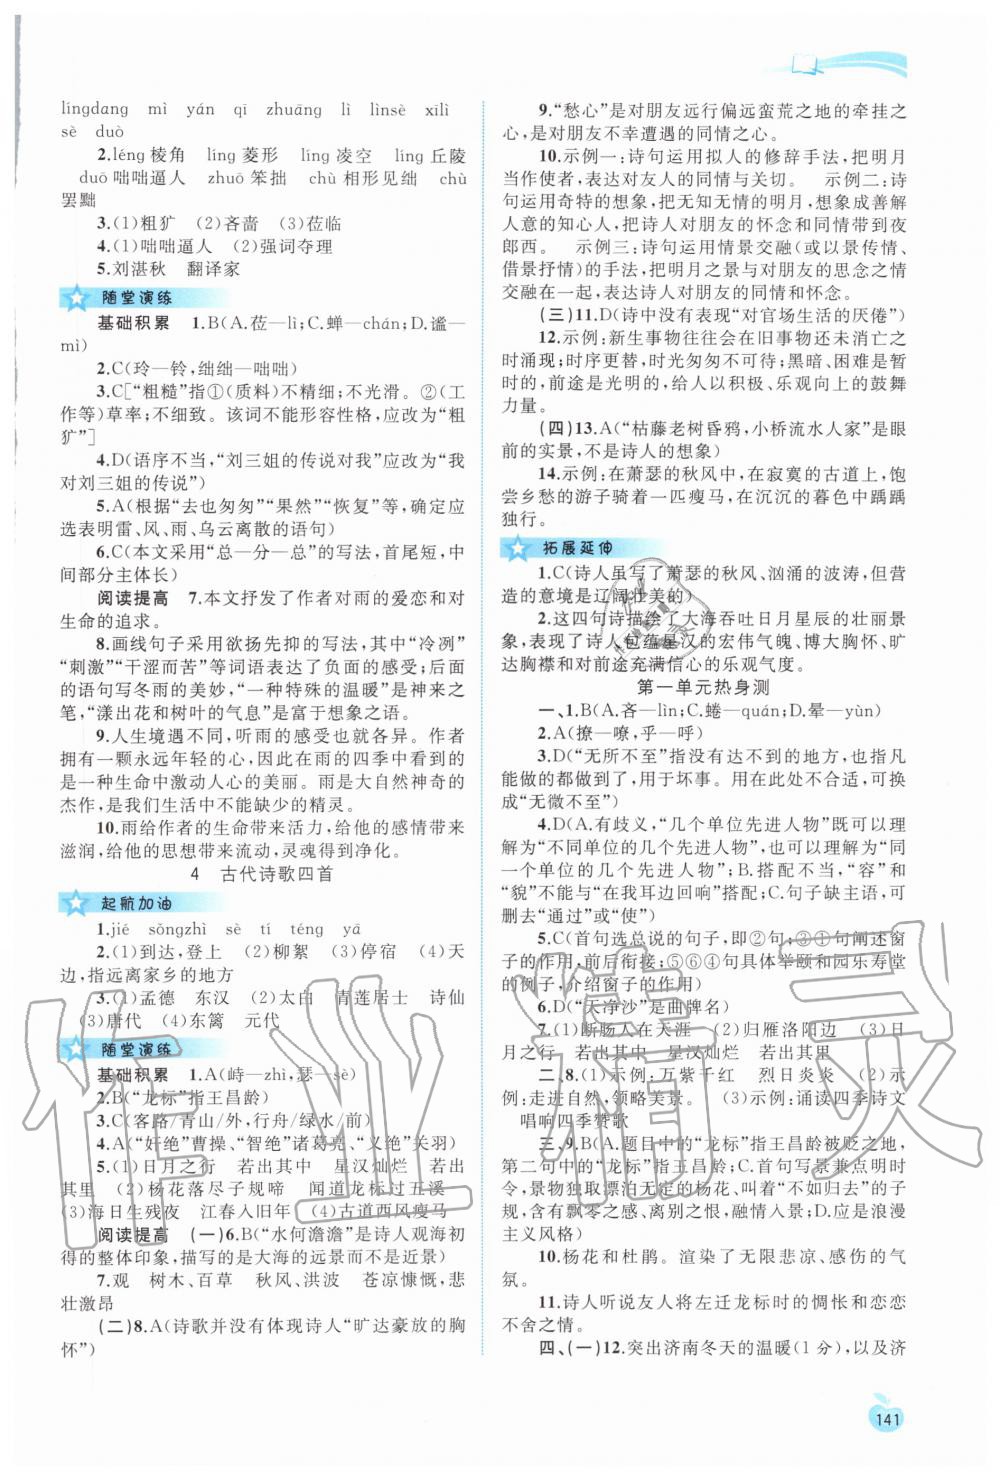 língdang mì yán qī zhuāng lì lìnsè xīlì
sè duò
2.léng棱角 líng菱形 líng凌空 líng丘陵
duō咄咄逼人 zhuō笨拙 chù相形见绌 chù
罢黜
3.(1)粗犷 (2)吝啬 (3)莅临
4.(1)咄咄逼人 (2)强词夺理
5.刘湛秋 翻译家
随堂演练
基础积累 1.B(A.莅—lì;C.蝉—chán;D.谧—
mì)
2.C(玲—铃,绌绌—咄咄)
3.C[“粗糙”指①(质料)不精细;不光滑。②(工
作等)草率;不细致。该词不能形容性格,应改为“粗
犷”]
4.D(语序不当,“刘三姐的传说对我”应改为“我
对刘三姐的传说”)
5.A(根据“去也匆匆”“果然”“恢复”等,确定应
选表明雷、风、雨、乌云离散的语句)
6.C(本文采用“总—分—总”的写法,首尾短,中
间部分主体长)
阅读提高 7.本文抒发了作者对雨的爱恋和对
生命的追求。
8.画线句子采用欲扬先抑的写法,其中“冷冽”
“刺激”“干涩而苦”等词语表达了负面的感受;后面
的语句写冬雨的美妙,“一种特殊的温暖”是神来之
笔,“漾出花和树叶的气息”富于想象之语。
9.人生境遇不同,听雨的感受也就各异。作者
拥有一颗永远年轻的心,因此在雨的四季中看到的
是一种生命中激动人心的美丽。雨是大自然神奇的
杰作,是我们生活中不能缺少的精灵。
10.雨给作者的生命带来活力,给他的感情带来
滋润,给他的思想带来流动,灵魂得到净化。
4 古代诗歌四首
起航加油
1.jié sǒngzhì sè tí téng yā
2.(1)到达,登上 (2)柳絮 (3)停宿 (4)天
边,指远离家乡的地方
3.(1)孟德 东汉 (2)太白 青莲居士 诗仙
(3)唐代 (4)东篱 元代
随堂演练
基础积累 1.A(峙—zhì,瑟—sè)
2.B(“龙标”指王昌龄)
3.C(客路/青山/外,行舟/绿水/前)
4.A(“奸绝”曹操、“智绝”诸葛亮、“义绝”关羽)
5.(1)日月之行 若出其中 星汉灿烂 若出
其里 (2)杨花落尽子规啼 闻道龙标过五溪
(3)海日生残夜 江春入旧年 (4)古道西风瘦马
阅读提高 (一)6.B(“水何澹澹”是诗人观海初
得的整体印象,描写的是大海的远景而不是近景)
7.观 树木、百草 秋风、洪波 苍凉慷慨,悲
壮激昂
(二)8.A(诗歌并没有体现诗人“旷达豪放的胸
怀”)
9.“愁心”是对朋友远行偏远蛮荒之地的牵挂之
心,是对朋友不幸遭遇的同情之心。
10.示例一:诗句运用拟人的修辞手法,把明月
当作使者,表达对友人的同情与关切。 示例二:诗
句运用奇特的想象,把无知无情的明月,想象成善解
人意的知心人,把诗人对朋友的怀念和同情带到夜
郎西。 示例三:诗句运用情景交融(或以景传情、
借景抒情)的手法,把明月之景与对朋友的思念之情
交融在一起,表达诗人对朋友的关切和同情。
(三)11.D(诗中没有表现“对官场生活的厌倦”)
12.示例:新生事物往往会在旧事物还未消亡之
时涌现;时序更替,时光匆匆不可待;黑暗、困难是暂
时的,前途是光明的,给人以积极、乐观向上的鼓舞
力量。
(四)13.A(“枯藤老树昏鸦,小桥流水人家”是眼
前的实景,不是诗人的想象)
14.示例:在萧瑟的秋风中,在寂寞的古道上,饱
尝乡愁的游子骑着一匹瘦马,在沉沉的暮色中踽踽
独行。
拓展延伸
1.C(诗人虽写了萧瑟的秋风、汹涌的波涛,但营
造的意境是辽阔壮美的)
2.这四句诗描绘了大海吞吐日月星辰的壮丽景
象,表现了诗人包蕴星汉的宏伟气魄、博大胸怀、旷
达胸襟和对前途充满信心的乐观气度。
第一单元热身测
一、1.B(A.吝—lìn;C.蜷—quán;D.晕—yùn)
2.A(撩—嘹,乎—呼)
3.D(“无所不至”指没有达不到的地方,也指凡
能做的都做到了,用于坏事。用在此处不合适,可换
成“无微不至”)
4.D(A.有歧义,“几个单位先进人物”既可以理
解为“不同单位的几个先进人物”,也可以理解为“同
一个单位的几个先进人物”;B.搭配不当,“容”和
“貌”不能和“在四边回响”搭配;C.句子缺主语,可
删去“通过”或“使”)
5.C(首句选总说的句子,即②句;③①句阐述窗
子的作用,前后衔接;⑤⑥④句具体举颐和园乐寿堂
的例子,介绍窗子的作用)
6.D(“天净沙”是曲牌名)
7.(1)断肠人在天涯 (2)归雁洛阳边 (3)日
月之行 若出其中 星汉灿烂 若出其里
二、8.(1)示例:万紫千红 烈日炎炎 (2)示
例:走进自然,领略美景。 (3)示例:诵读四季诗文
唱响四季赞歌
三、9.B(A.题目中的“龙标”指王昌龄被贬之地,
第二句中的“龙标”指王昌龄;C.首句写景兼点明时
令,景物独取漂泊无定的杨花、叫着“不如归去”的子
规,含有飘零之感、离别之恨,融情入景;D.应是浪漫
主义风格)
10.杨花和杜鹃。渲染了无限悲凉、感伤的气
氛。
11.诗人听说友人将左迁龙标时的惆怅和恋恋
不舍之情。
四、(一)12.突出济南冬天的温暖(1分),以及济
141
作业精灵